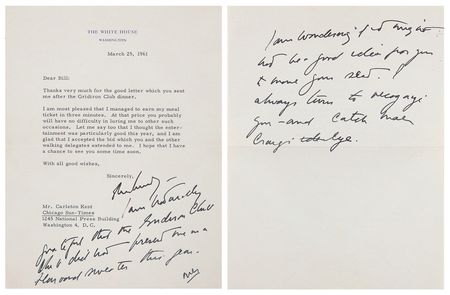 THE WHITE HOUSE
WASHINGTON
March 25, 1961
Dear Bill:
Thanks very much for the good letter which you sent
me after the Gridiron Club dinner.
I am most pleased that I managed to earn my meal
ticket in three minutes. At that price you probably
will have no difficulty in luring me to other such
occasions. Let me say too that I thought the enter-
tainment was particularly good this year, and I am
glad that I accepted the bid which you and the other
walking delegates extended to me. I hope that I have
a chance to see you some time soon.
With all good wishes,
Sincerely,
I am
grateful that the Gridiron Club
did not present me in a
this year.
Mr. Carleton Kent
Chicago Sun-Times
1245 National Press Building
Washington 4, D. C.
I am wondering if it might
not be a good idea for you
to move your
always turn to
you - and catch